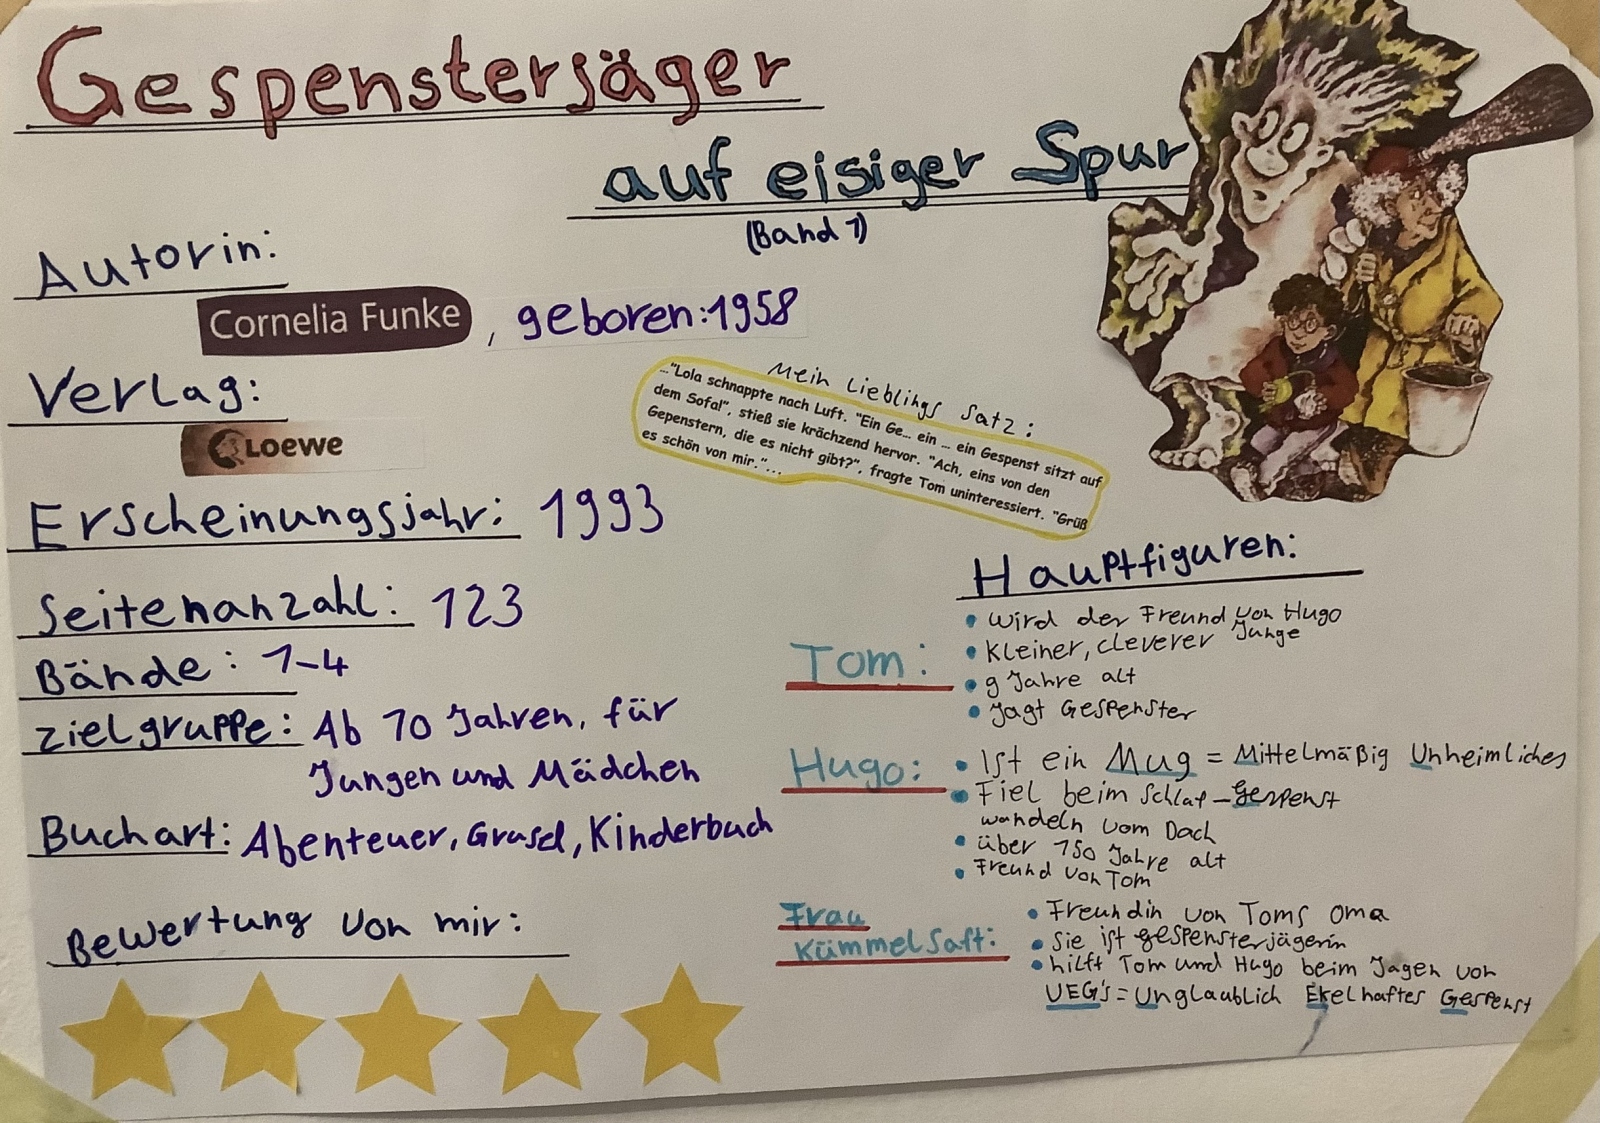 Gespensterjäger
auf eisiger Spur
(Band 1)
Autorin:
Cornelia Funke, geboren: 1958
Verlag:
LOEWE
Erscheinungsjahr: 1993
Seitenanzahl: 123
Bände: 1-4
Zielgruppe: Ab 10 Jahren, für
Jungen und Mädchen
Buchart: Abenteuer, Grusel, Kinderbuch
Bewertung von mir:
Mein Lieblings Satz:
..."Lola schnappte nach Luft. "Ein Ge... ein ... ein Gespenst sitzt auf
dem Sofa!", stieß sie krächzend hervor. "Ach, eins von den
Gepenstern, die es nicht gibt?", fragte Tom uninteressiert. "Grüß
es schön von mir."...
Hauptfiguren:
Tom:
• wird der Freund von Hugo
• Kleiner, cleverer Junge
• 9 Jahre alt
• Jagt Gespenster
Hugo:
• Ist ein Mug = Mittelmäßig Unheimliches
• Fiel beim Schlaf- Gespenst
wandeln vom Dach
• über 150 Jahre alt
• Freund von Tom
Frau
Kümmelsaft:
• Freundin von Toms Oma
• Sie ist gespensterjägerin
• hilft Tom und Hugo beim Jagen von
UEG's = Unglaublich Ekelhaftes Gespenst